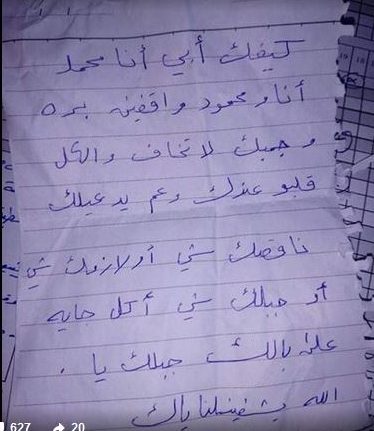 كيفك أبي أنا محمد
أنا و محمود واقفين بره
و جمبك لا تخاف والكل
قلبو عندك وعم يدعيلك
ناقصك شي أو لازمك شي
أو جبلك شي أكل جايه
على بالك جبلك يا .
الله يشفيلنا ياك
627 20